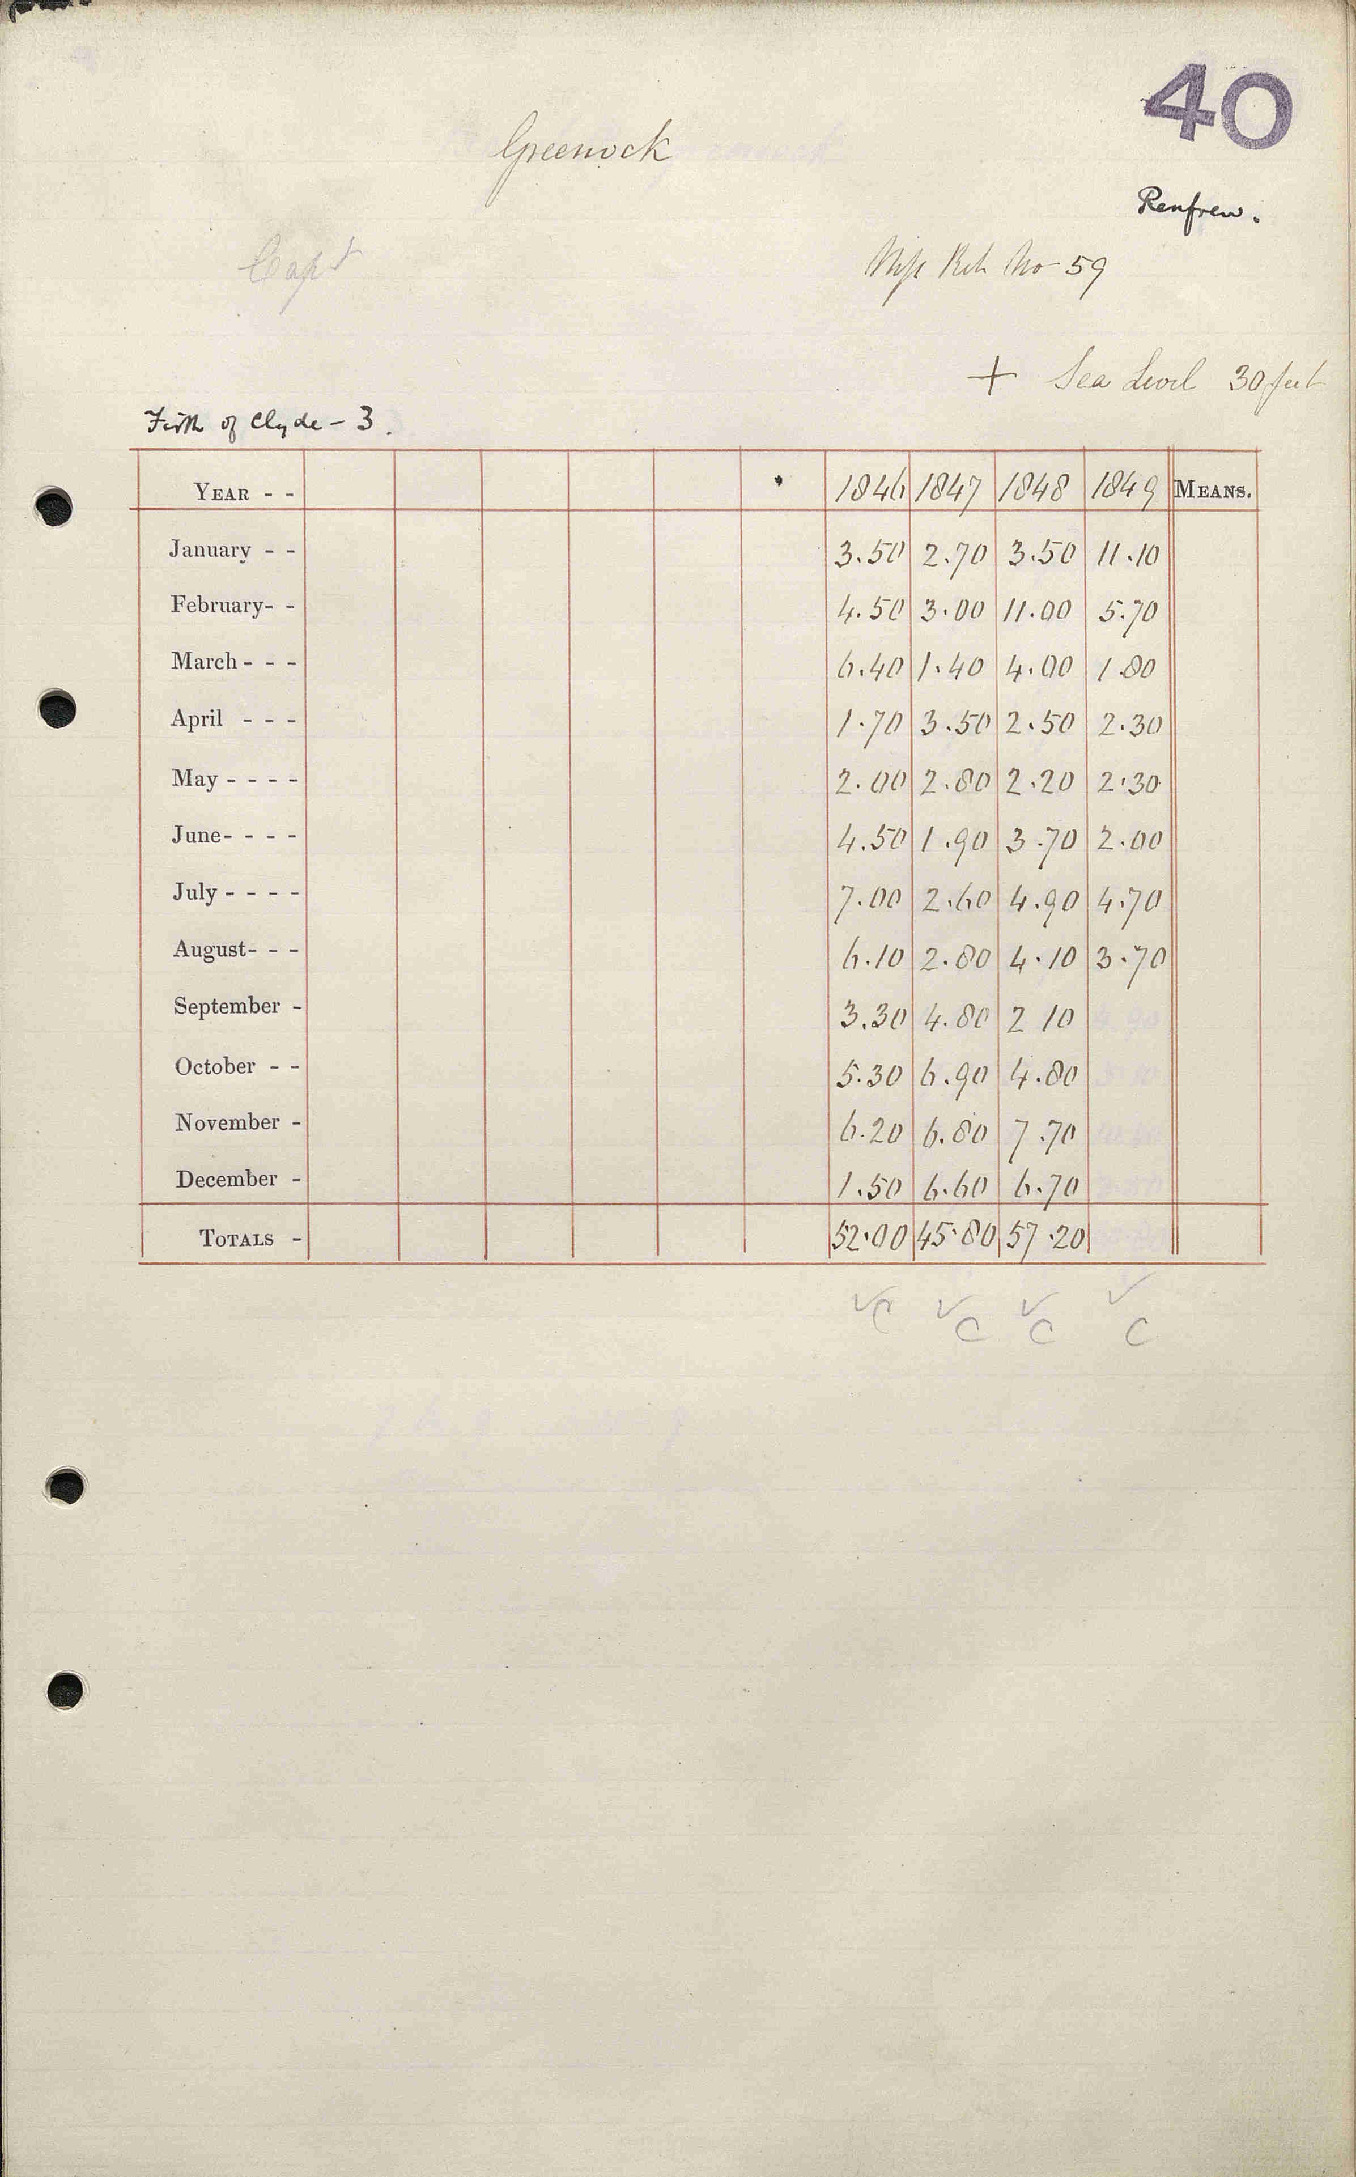 40
Greenock
Renfrew.
Capt
Ret No 59
+ Sea Level 30 feet
Firth of Clyde - 3.
YEAR - - 1846 1847 1848 1849 MEANS.
January - - 3.50 2.70 3.50 11.10
February- - 4.50 3.00 11.00 5.70
March - - - 6.40 1.40 4.00 1.80
April - - - 1.70 3.50 2.50 2.30
May - - - - 2.00 2.80 2.20 2.30
June- - - - 4.50 1.90 3.70 2.00
July - - - - 7.00 2.60 4.90 4.70
August- - - 6.10 2.80 4.10 3.70
September - 3.30 4.80 2 10
October - - 5.30 6.90 4.80
November - 6.20 6.80 7.70
December - 1.50 6.60 6.70
TOTALS - 52.00 45.80 57.20
✓C ✓C ✓C ✓C